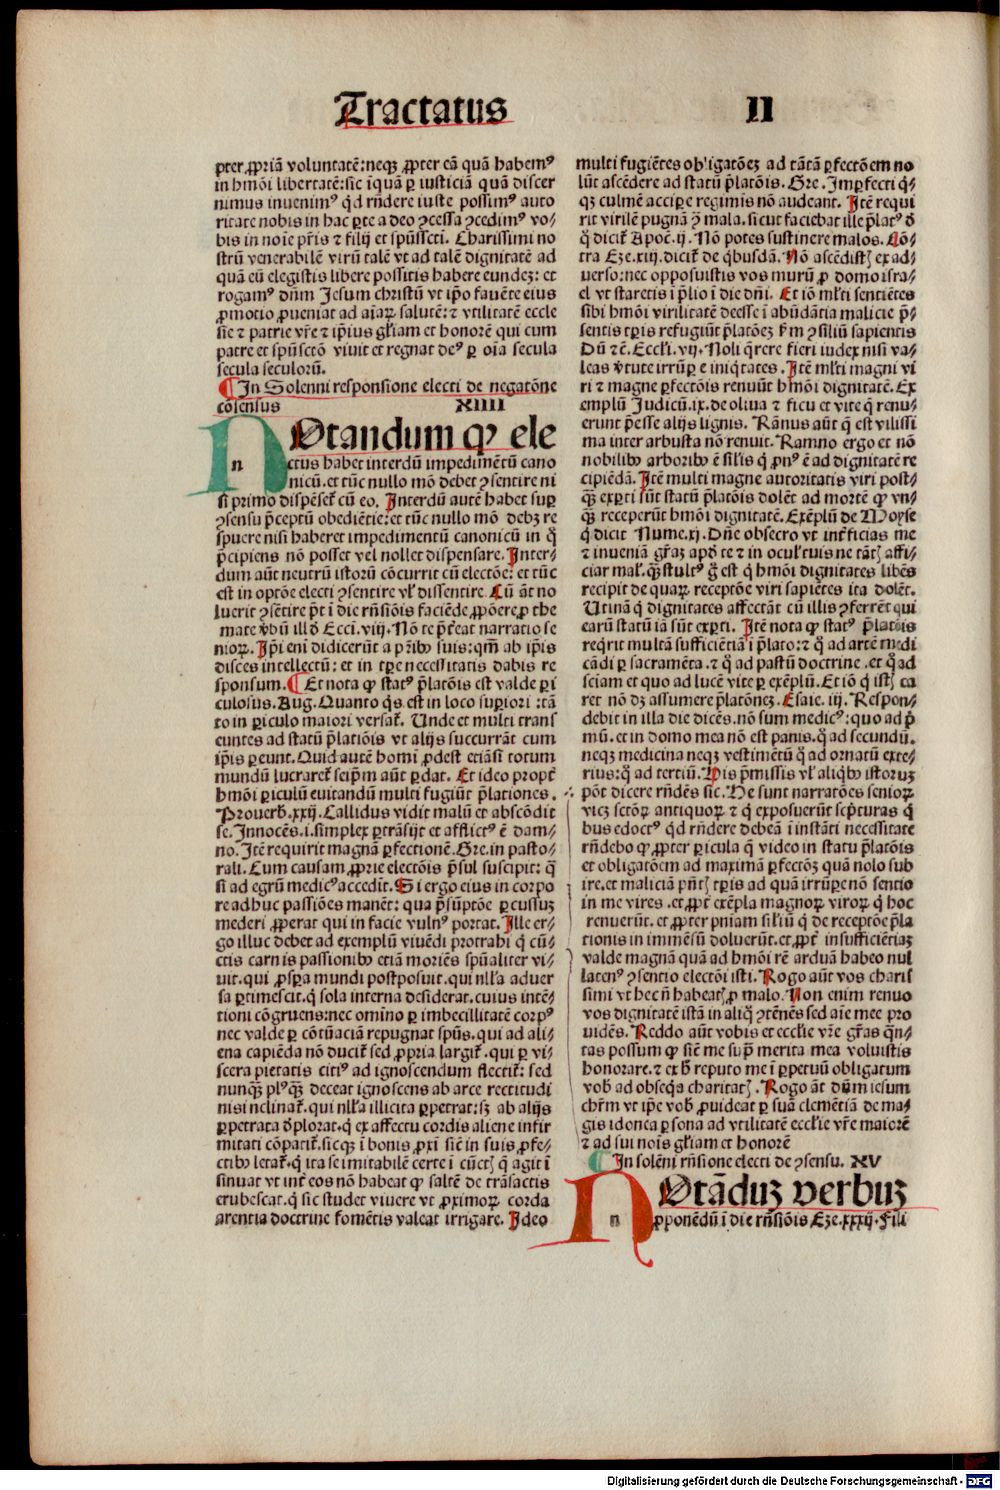 Tractatus II
pter ꝓpriā voluntatē: neqꝫ ꝓpter eā quā habemꝰ
in hmōi libertatē: sic ī quā ꝑ iusticiā quā discer
nimus inuenimꝰ qd rn̄dere iuste possimꝰ aucto
ritate nobis in hac ꝑte a deo ꝯcessa ꝯcedimꝰ vo⸗
bis in noīe pr̄is ⁊ filij et spūssct̄i. Charissimi no
strū venerabilē virū talē vt ad talē dignitatē ad
quā eū elegistis libere possitis habere eundeꝫ: et
rogamꝰ dn̄m Jesum christū vt ip̄o fauēte eius
ꝓmotio ꝓueniat ad aīaꝝ salutē: ⁊ vtilitatē eccle
sie ⁊ patrie vr̄e ⁊ ip̄ius gl̄iam et honorē qui cum
patre et spūsctō viuit et regnat deꝰ ꝑ oīa secula
secula seculorū.
In Solenni responsione electi de negatōne
cōsensus XIIII
NOtandum ꝙ ele
n ctus habet interdū impedimētū cano
nicū. et tūc nullo mō debet ꝯsentire ni
si primo dispēset̄ cū eo. Interdū autē habet suꝑ
ꝯsensu p̄ceptū obediētie: et tūc nullo mō debꝫ re
spuere nisi haberet impedimentū canonicū in q̊
p̄cipiens nō posset vel nollet dispensare. Inter⸗
dum aūt neutrū istorū cōcurrit cū electōe: et tūc
est in optōe electi ꝯsentire vl̄ dissentire. Cū āt no
luerit ꝯsētire p̄t ī die rn̄siōis faciēde ꝓponere ꝓ the
mate v̄bū ill̄d Ecci. viij. Nō te p̄t̄eat narratio se
nioꝝ. Ip̄i eni didicerūt a pr̄ibꝰ suis: qm̄ ab ip̄is
disces intellectū: et in tp̄e necessitatis dabis re
sponsum. Et nota ꝙ statꝰ p̄latōis est valde ꝑi
culosus. Aug. Quanto q̄s est in loco suꝑiori: tā
to in ꝑiculo maiori versat̄. Unde et multi trans
euntes ad statū p̄latiōis vt alijs succurrāt cum
ip̄is ꝑeunt. Quid autē homi ꝓdest etiāsi totum
mundū lucraret̄ seip̄m aūt ꝑdat. Et ideo propt̄
hmōi ꝑiculū euitandū multi fugiūt p̄lationes.
Prouerb. xxij. Callidus vidit malū et abscōdit
se. Innocēs. i. simplex ꝑtrāsijt et afflictꝰ ē dam⸗
no. Itē requirit magnā ꝑfectionē. Gre. in pasto⸗
rali. Cum causam ꝓprie electōis p̄sul suscipit: q̄
si ad egrū medicꝰ accedit. Si ergo eius in corpo
re adhuc passiōes manēt: qua p̄sūptōe ꝑcussuꝫ
mederi ꝓperat qui in facie vulnꝰ portat. Ille er⸗
go illuc debet ad exemplū viuēdi protrahi q̄ cū⸗
ctis carnis passionibꝰ etiā moriēs spūaliter vi⸗
uit. qui ꝓspa mundi postposuit. qui nll̄a aduer
sa ꝑtimescit. q̄ sola interna desiderat. cuius intē⸗
tioni cōgruens: nec omino ꝑ imbecillitatē corpꝰ
nec valde ꝑ cōtūaciā repugnat spūs. qui ad ali⸗
ena capiēda nō ducit̄ sed ꝓpria largit̄. qui ꝑ vi⸗
scera pietatis citiꝰ ad ignoscendum flectit̄: sed
nunqꝫ plꝰqꝫ deceat ignoscens ab arce rectitudi
nis inclinat̄. qui nll̄a illicita ꝑpetrat: sꝫ ab alijs
ꝑpetrata d̄plorat. q̄ ex affectu cordis aliene infir
mitati cōpatit̄. sicqꝫ ī bonis ꝓxi siē in suis ꝓfe⸗
ctibꝰ letat̄. q̄ ita se imitabilē certe ī cūctꝭ q̄ agit ī
sinuat vt int̄ eos nō habeat q̄ saltē de trāsactis
erubescat. q̄ sic studet viuere vt ꝓximoꝝ corda
arentia doctrine fomētis valeat irrigare. Ideo
multi fugiētes obligatōeꝫ ad tātā ꝑfectōem no
lūt ascēdere ad statū p̄latōis. Gre. Imꝑfecti q̄⸗
qꝫ culmē accipe regimis nō audeant. Itē requi
rit virilē pugnā ꝯ mala. sicut faciebat ille p̄latꝰ d̄
q̄ dicit̄ Apoc̄. ij. Nō potes sustinere malos. Cō⸗
tra Eze. xiij. dicit̄ de q̇busdā. Nō ascēdistꝭ ex ad⸗
uerso: nec opposuistis vos murū ꝓ domo isra⸗
el vt staretis ī p̄lio ī die dn̄i. Et iō ml̄ti sentiētes
sibi hmōi virilitatē deesse ī abūdātia malicie p̄⸗
sentis tꝑis refugiūt p̄latōeꝫ k̄m ꝯsiliū sapientis
Dū ⁊c̄. Eccl̄i. vij. Noli q̄rere fieri iudex nisi va⸗
leas v̄tute irrūꝑe iniq̇tates. Itē ml̄ti magni vi
ri ⁊ magne ꝑfectōis renuūt hmōi dignitatē. Ex
emplū Judicū. ix. de oliua ⁊ ficu et vite q̄ renu⸗
erunt p̄esse alijs lignis. Rānus aūt q̄ est vilissi
ma inter arbusta nō renuit. Ramno ergo et nō
nobilibꝰ arboribꝰ ē silis q̄ ꝓnꝰ ē ad dignitatē re
cipiēdā. Itē multi magne autoritatis viri post⸗
qꝫ exꝑti sūt statū p̄latōis dolēt ad mortē ꝙ vn⸗
qꝫ receperūt hmōi dignitatē. Exēplū de Moyse
q̄ dicit Nume. xj. Dn̄e obsecro vt int̄ficias me
⁊ inueniā gr̄aꝫ apd̄ te ⁊ in ocul̄ tuis ne tātꝭ affi⸗
ciar mal̄. qꝫ stultꝰ g̊ est q̄ hmōi dignitates libēs
recipit de quaꝝ receptōe viri sapiētes ita dolēt.
Utinā q̄ dignitates affectāt cū illis ꝯferrēt qui
earū statū iā sūt exꝑti. Itē nota ꝙ statꝰ p̄latōis
req̇rit multā sufficiētiā ī p̄lato: ⁊ q̊ ad artē medi
cādi ꝑ sacramēta. ⁊ q̊ ad pastū doctrine. et q̊ ad
sciam et quo ad lucē vite ꝑ exēplū. Et iō q̄ istꝭ ca
ret nō dꝫ assumere p̄latōneꝫ. Esaie. iij. Respon⸗
debit in illa die dicēs. nō sum medicꝰ: quo ad p̄
mū. et in domo mea nō est panis. q̊ ad secundū.
neqꝫ medicina neqꝫ vestimētū q̊ ad ornatū exte⸗
rius: q̊ ad tertiū. His p̄missis vl̄ aliq̇bꝰ istoruꝫ
pōt dicere rn̄dēs sic. Ne sunt narratōes senioꝝ
vicꝫ sctōꝝ antiquoꝝ ⁊ q̄ exposuerūt sc̄pturas q̄
bus edoctꝰ qd rn̄dere debeā ī instāti necessitate
rn̄debo ꝙ ꝓpter ꝑicula q̄ video in statu p̄latōis
et obligatōem ad maximā ꝑfectōꝫ quā nolo sub
ire. et maliciā pn̄tꝭ tꝑis ad quā irrūꝑe nō sentio
in me vires. et ꝓpt̄ exēpla magnoꝝ viroꝝ q̄ hoc
renuerūt. et ꝓpter pniam siliū q̄ de receptōe p̄la
tionis in immēsū doluerūt. et ꝓpt̄ insufficiētiaꝫ
valde magnā quā ad hmōi rē arduā habeo nul
latenꝰ ꝯsentio electōi isti. Rogo aūt vos charis
simi vt hec n̄ habeatꝭ ꝓ malo. Non enim renuo
vos dignitatē istā in aliq̊ ꝯtēnēs sed aīe mee pro
uidēs. Reddo aūt vobis et eccl̄ie vr̄e gr̄as q̄n⸗
tas possum ꝙ siē me sup̄ merita mea voluistis
honorare. ⁊ ex h̄ reputo me ī ꝑpetuū obligatum
vob̄ ad obseq̇a charitatꝭ. Rogo āt dn̄m iesum
chr̄m vt ip̄e vob̄ ꝓuideat ꝑ suā clemētiā de ma⸗
gis idonea ꝑsona ad vtilitatē eccl̄ie vr̄e maiorē
⁊ ad sui noīs gl̄iam et honorē
In solēni rn̄sione electi de ꝯsensu. XV
NOtāduꝫ verbuꝫ
n ꝓponēdū ī die rn̄siōis Eze. xxxij. Fili